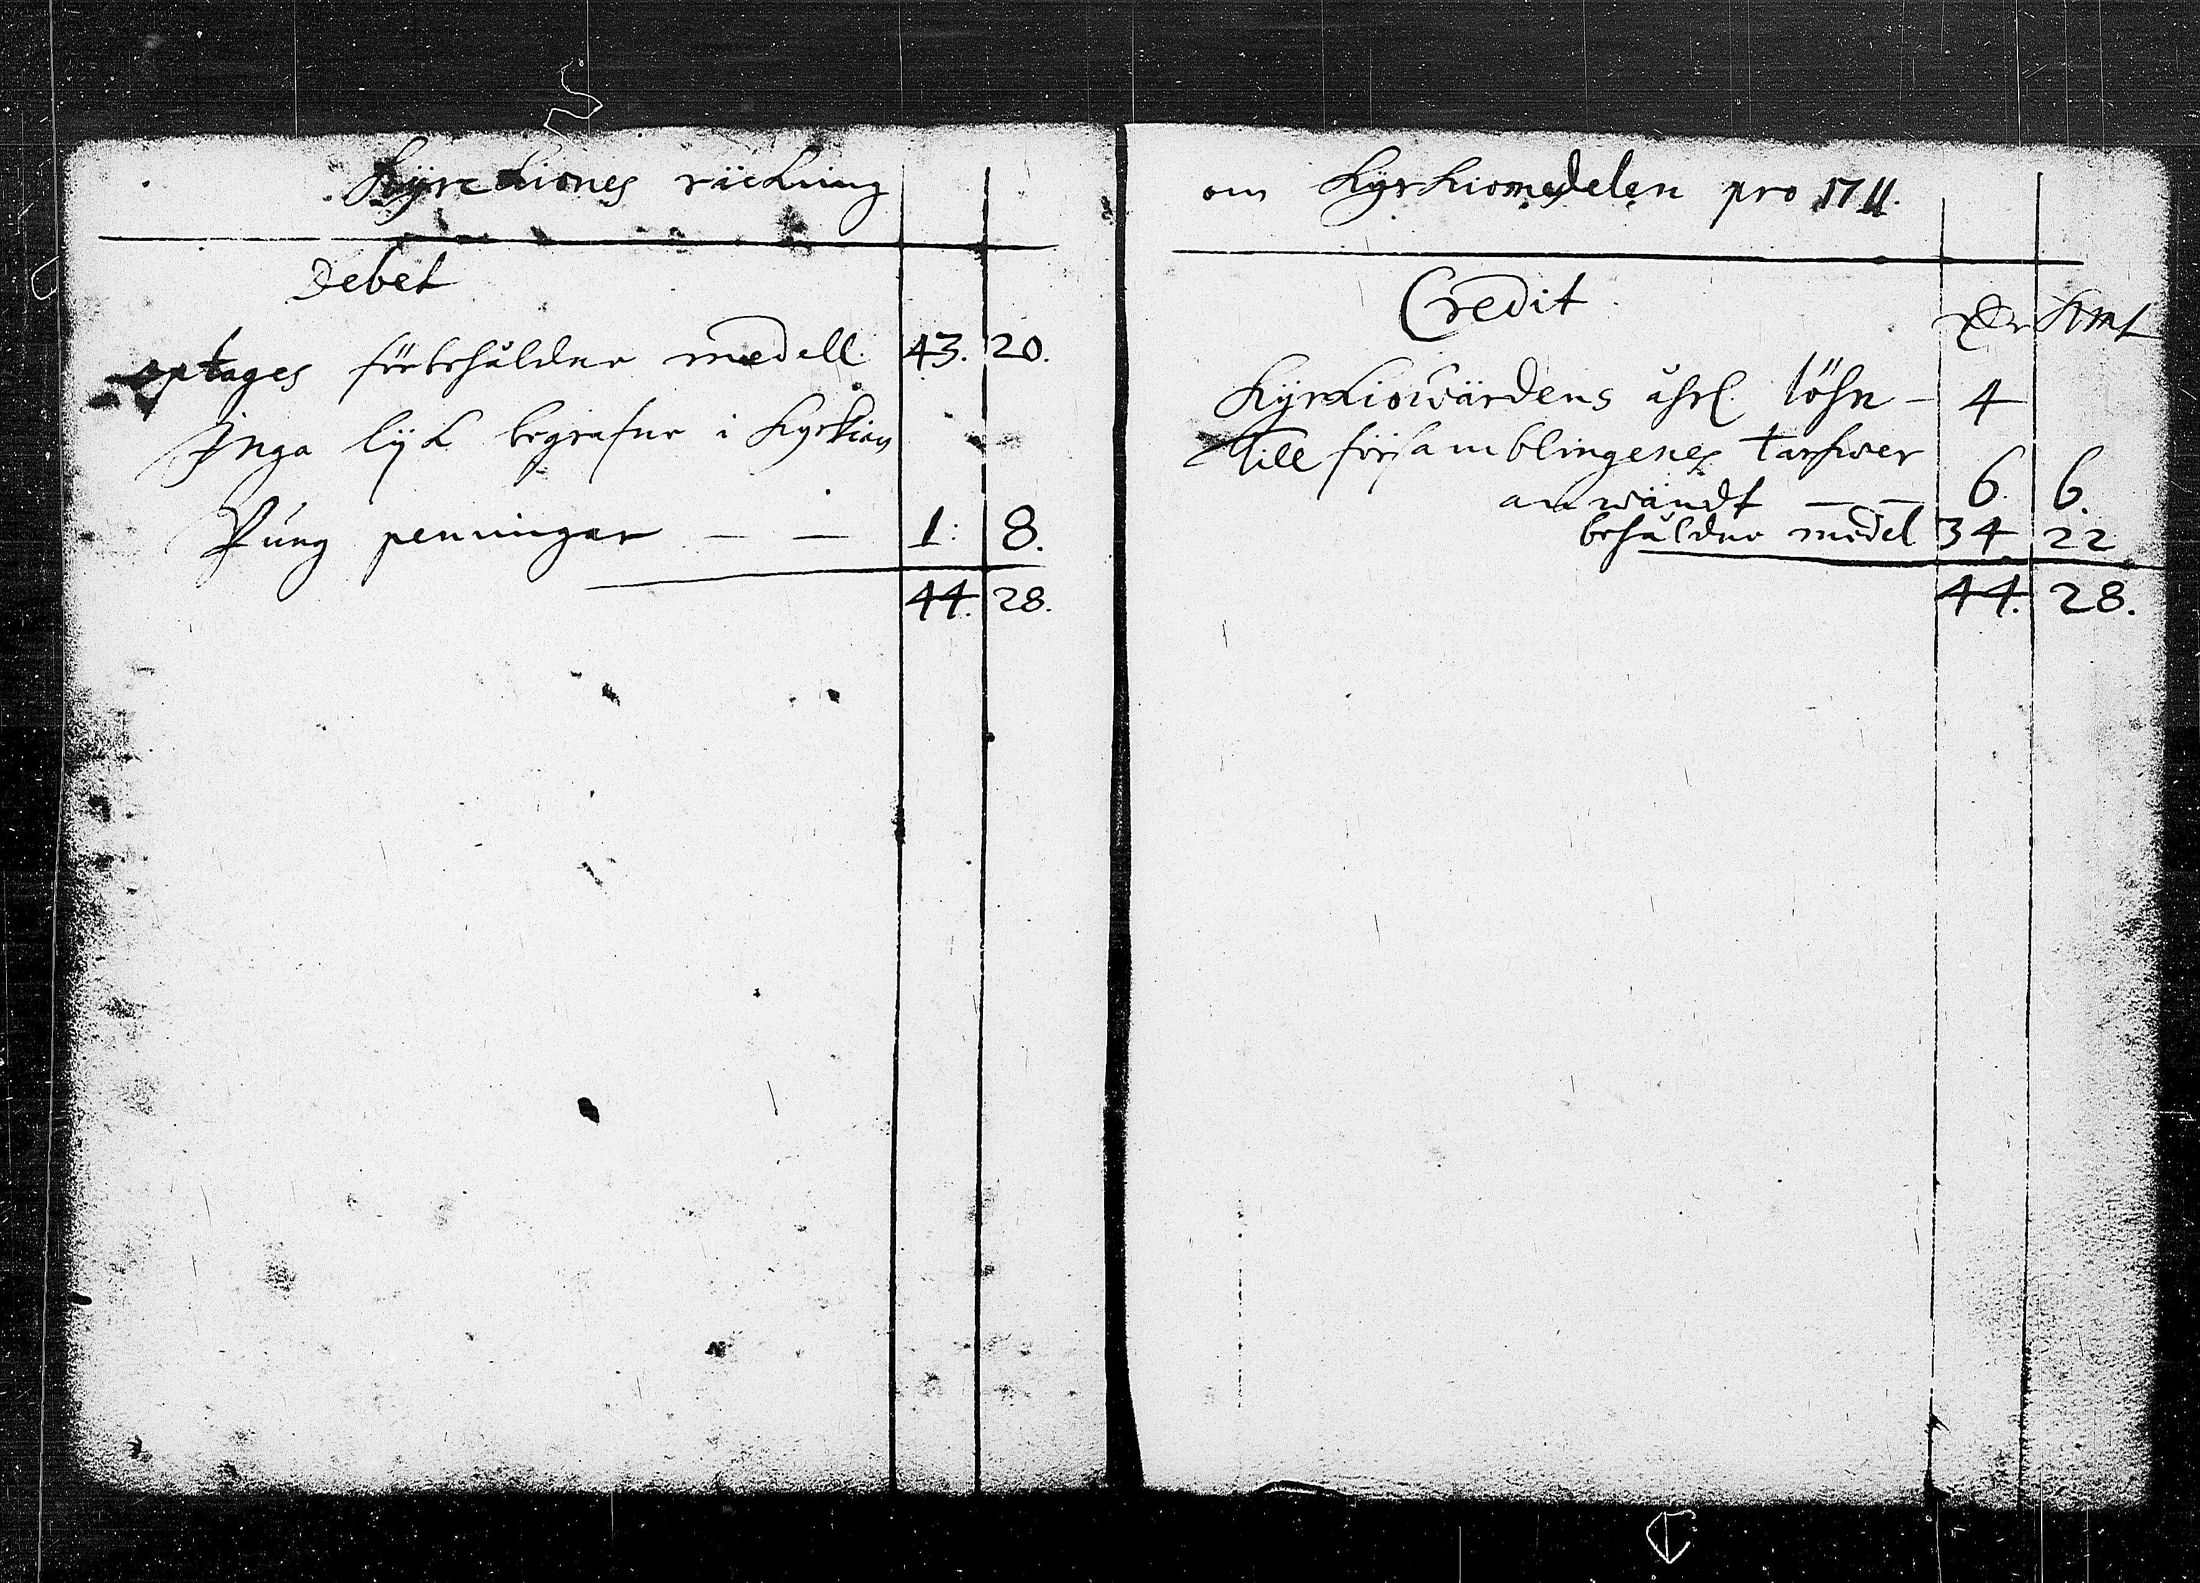 Kyrckiones räckning
Debet
optages förbehåldne medell. 43. 20.
Inga lijk begrafne i Kyrkian
Pung penningar — — 1: 8.
44. 28.
om Kyrkiomedelen pro 1711.
Credit
Dr Kmt
Kyrkiowärdens åhrl. löhn – 4
till församblingenes tarfwer
anwändt — — 6. 6.
behåldne medel 34 22
44. 28.